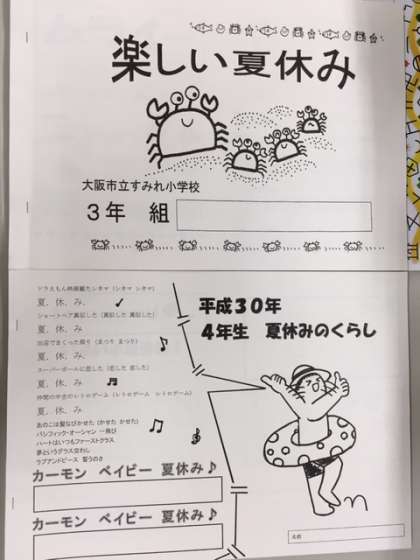 楽しい夏休み
大阪市立すみれ小学校
3年 組
ドラえもん映画観たシネマ (シネマ シネマ)
夏. 休. み.
ショートヘア真似した (真似した 真似した)
夏. 休. み.
出店できくった祭り (まつり まつり)
夏. 休. み.
スーパーボールに恋した (恋した 恋した)
夏. 休. み.
仲間の半在のレトロゲーム (レトロゲーム レトロゲーム)
夏. 休. み
あのこは髪なびかせた (かせた かせた)
パシフィック・オーシャン 一飛び
ハートはいつもファーストクラス
夢というグラス交わし
ラブアンドピース 誓うのさ
カーモン ベイビー 夏休み♪
カーモン ベイビー 夏休み♪
平成30年
4年生 夏休みのくらし
名前